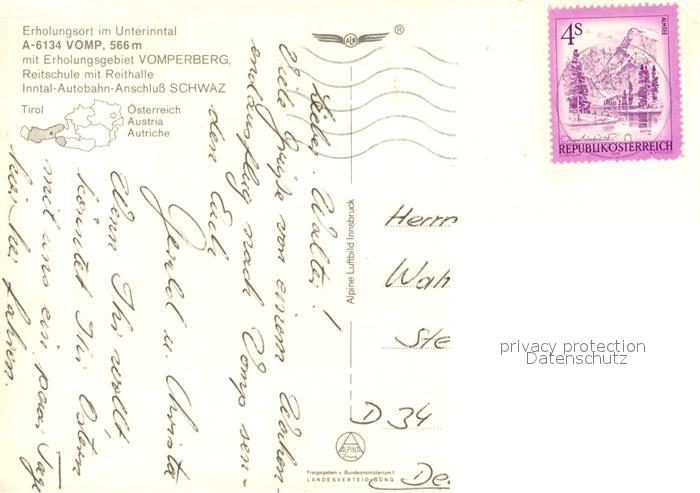 Erholungsort im Unterinntal
A-6134 VOMP, 566 m
mit Erholungsgebiet VOMPERBERG,
Reitschule mit Reithalle
Inntal-Autobahn-Anschluß SCHWAZ
Tirol
Österreich
Austria
Autriche
ALM
®
4S
ALMSEE
REPUBLIK ÖSTERREICH
Lieber Walter!
Viele Grüße von einem Wochen-
endausflug nach Vomp sen-
den Euch
u. Christa
Wenn Ihr wollt
könntet Ihr Ostern
mit uns ein paar Tage
hierher fahren.
Alpine Luftbild Innsbruck
Herrn
Wal
Ste
D 34
De
privacy protection
Datenschutz
ALPINA
Druck
Freigegeben v. Bundesministerium f.
LANDESVERTEIDIGUNG